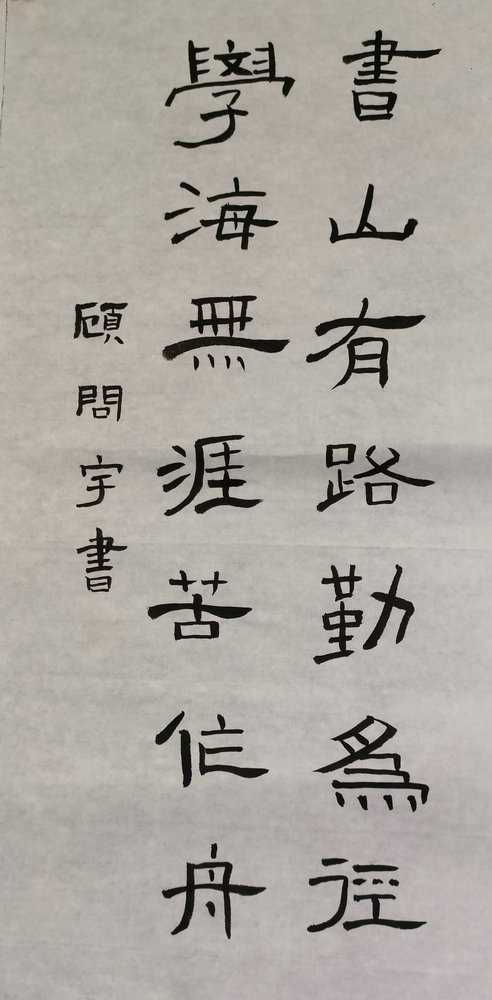 書山有路勤為徑
學海無涯苦作舟
顧問宇書